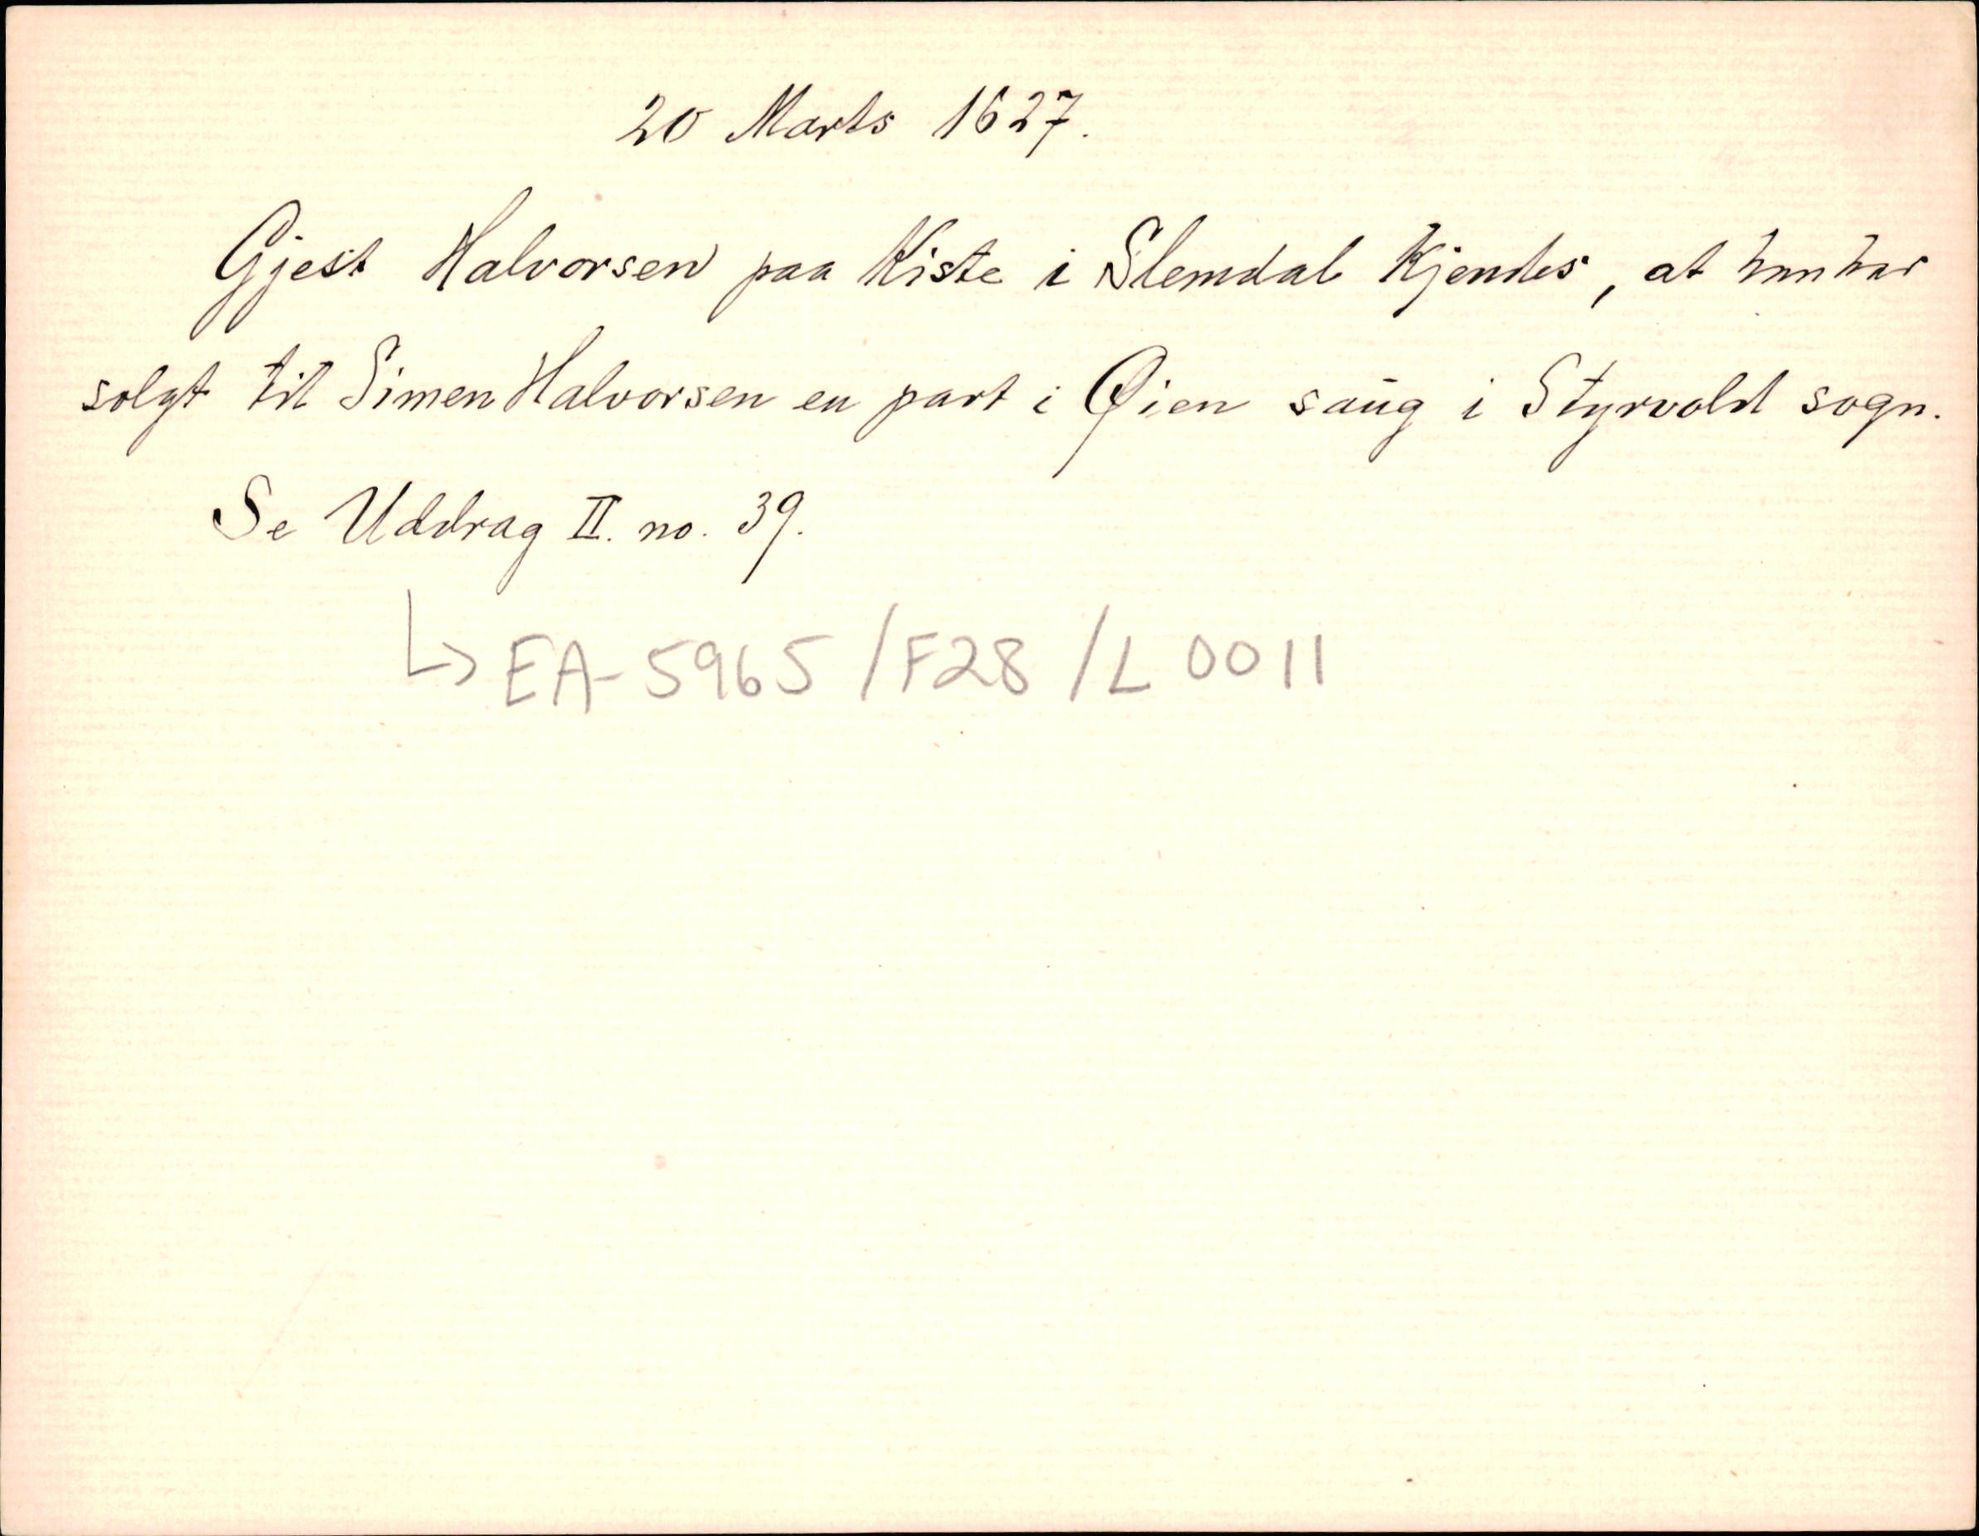 20 Marts 1627.
Gjest Halvorsen paa Kiste i Slemdal kjendes, at han har
solgt til Simen Halvorsen en part i Øien saug i Styrvold sogn.
Se Uddrag II. no. 39.
↳ EA-5965/F28/L0011